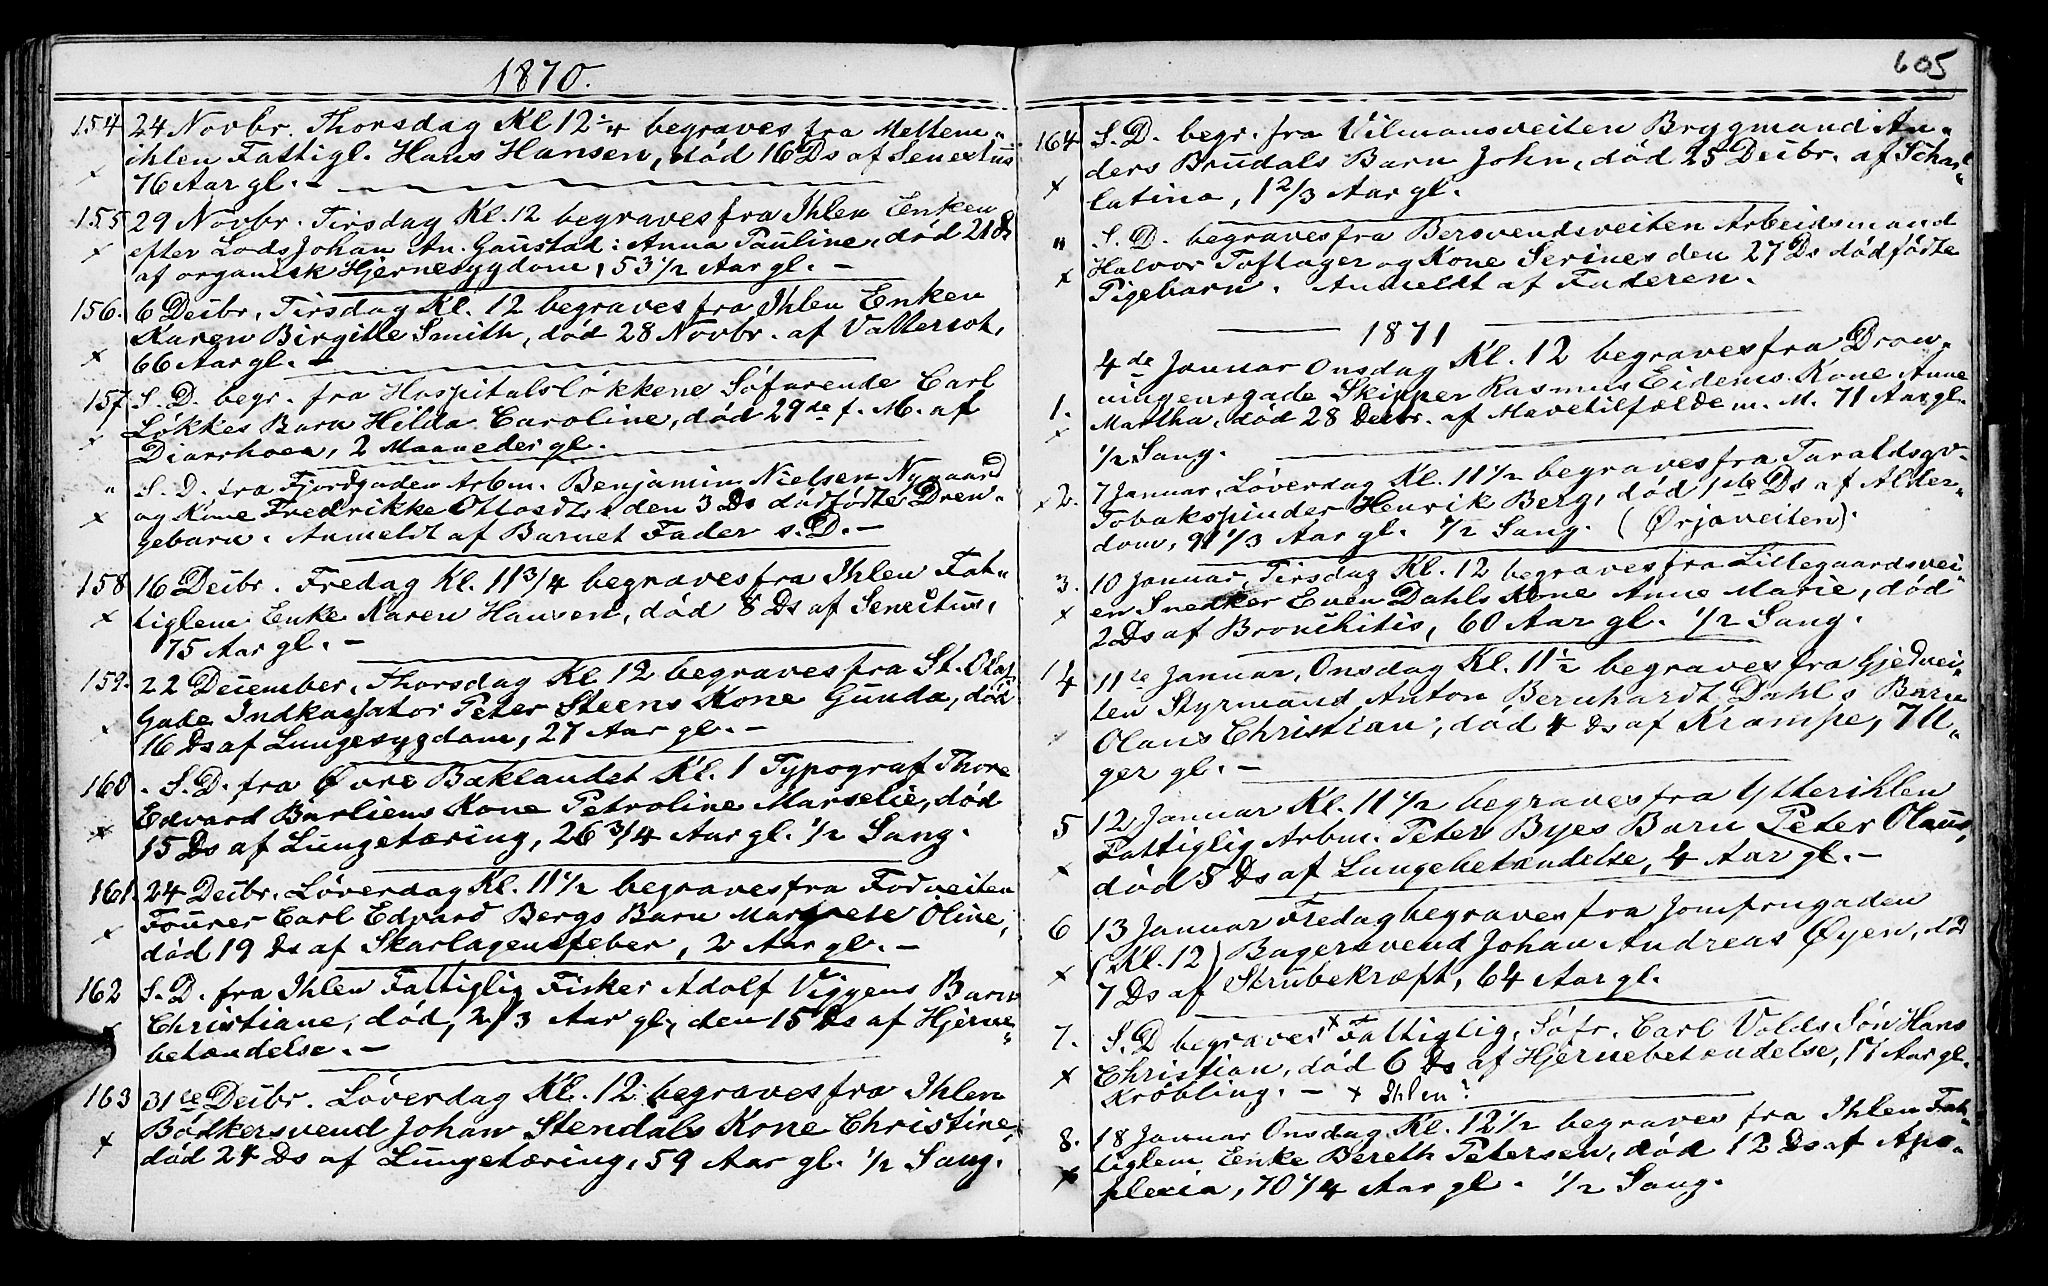 1870.
154 24 Novbr. Thorsdag Kl 12 1/4 begraves fra Mellem-
ihlen Fattigl. Hans Hansen, død 16 Ds af Senectus
76 Aar gl. –
155 29 Novbr. Tirsdag Kl. 12 begraves fra Ihlen Enken
efter Lods Johan An. Gaustad: Anna Pauline, død 21 Ds
af organisk Hjernesygdom, 53 1/2 Aar gl. –
156. 6 Decbr, Tirsdag Kl. 12 begraves fra Ihlen Enken
Karen Birgitte Smith, død 28 Novbr. af Vattersot,
66 Aar gl. –
157 S. D. begr. fra Hospitalsløkkene Søfarende Carl
Løkkes Barn Hilda Caroline, død 29de f. M. af
Diarrhoea, 2 Maaneder gl.
" S. D. fra Fjordgaden Arbm. Benjamin Nielsen Nygaard
og Kone Fredrikke Ottosdt., den 3 Ds dødfødte Dren-
gebarn. Anmeldt af Barnet Fader s. D. –
158 16 Decbr. Fredag Kl. 11 3/4 begraves fra Ihlen Fat-
tiglem Enke Karen Hansen, død 8 Ds af Senectus,
75 Aar gl. –
159. 22 December, Thorsdag Kl 12 begraves fra St. Olafs
Gade Indkassator Peter Steens Kone Gunda, død
16 Ds af Lungesygdom, 27 Aar gl. –
160 . S. D. fra Øvre Baklandet Kl. 1 Typograf Thore
Edvard Barliens Kone Petroline Marselie, død
15 Ds af Lungetæring, 26 3/4 Aar gl. 1/2 Sang.
161. 24 Decbr. Løverdag Kl. 11 1/2 begraves fra Fodveiten
Fourer Carl Edvard Bergs Barn Margrete Oline,
død 19 Ds af Skarlagensfeber, 2 Aar gl. –
162 S. D. fra Ihlen Fattiglig Fisker Adolf Viggens Barn
Christiane, død, 2/3 Aar gl, den 15 Ds af Hjerne-
betændelse. –
163 31te Decbr. Løverdag Kl. 12 begraves fra Ihlen
Bødkersvend Johan Stendals Kone Christine,
død 24 Ds af Lungetæring, 59 Aar gl. 1/2 Sang.
605
164 S. D. begr. fra Vilmansveiten Brygmand An-
ders Brudals Barn John, død 25 Decbr. af Schar-
latina, 1 2/3 Aar gl.
" S. D. begraves fra Bersvendsveiten Arbeidsmand
Halvor Toftager og Kone Serines den 27 Ds dødfødte
Pigebarn. Anmeldt af Faderen.
1871
4de Januar Onsdag Kl. 12 begraves fra Dron-
ningensgade Skipper Rasmus Eidems Kone Anne
1. Martha, død 28 Decbr. af Mavetilfælde m. M. 71 Aar gl.
1/2 Sang.
2. 7 Januar, Løverdag Kl. 11 1/2 begraves fra Taraldsgv-
Tobakspinder Henrik Berg, død 1ste Ds af Alder-
dom, 91 1/3 Aar gl. 1/2 Sang. (Ørjaveiten).
3. 10 Januar, Tirsdag Kl. 12 begraves fra Lillegaardsvei-
en Snedker Even Dahls Kone Anne Marie, død
2 Ds af Bronchitis, 60 Aar gl. 1/2 Sang.
4 11te Januar, Onsdag Kl. 11 1/2 begraves fra Gjedvei-
ten Styrmand Anton Bernhardt Dahl's Barn
Olaus Christian, død 4 Ds af Krampe, 7 U-
ger gl. –
5 12 Januar Kl. 11 1/2 begraves fra Ytterihlen
Fattiglig Arbm. Peter Byes Barn Peter Olaus,
død 5 Ds af Lungebetændelse, 4 Aar gl. –
6 13 Januar Fredag begraves fra Jomfrugaden
(Kl. 12) Bagersvend Johan Andreas Øyen, død
7 Ds af Strubekræft, 64 Aar gl.
7. S. D begraves x Fattiglig, Søfr. Carl Volds Søn Hans
Christian, død 6 Ds af Hjernebetændelse, 17 Aar gl.
Krøbling. – x Ihlen?
8. 18 Januar Onsdag Kl. 12 1/2 begraves fra Ihlen Fat-
tiglem Enke Bereth Petersen, død 12 Ds af Apo-
plexia, 70 1/4 Aar gl. 1/2 Sang.